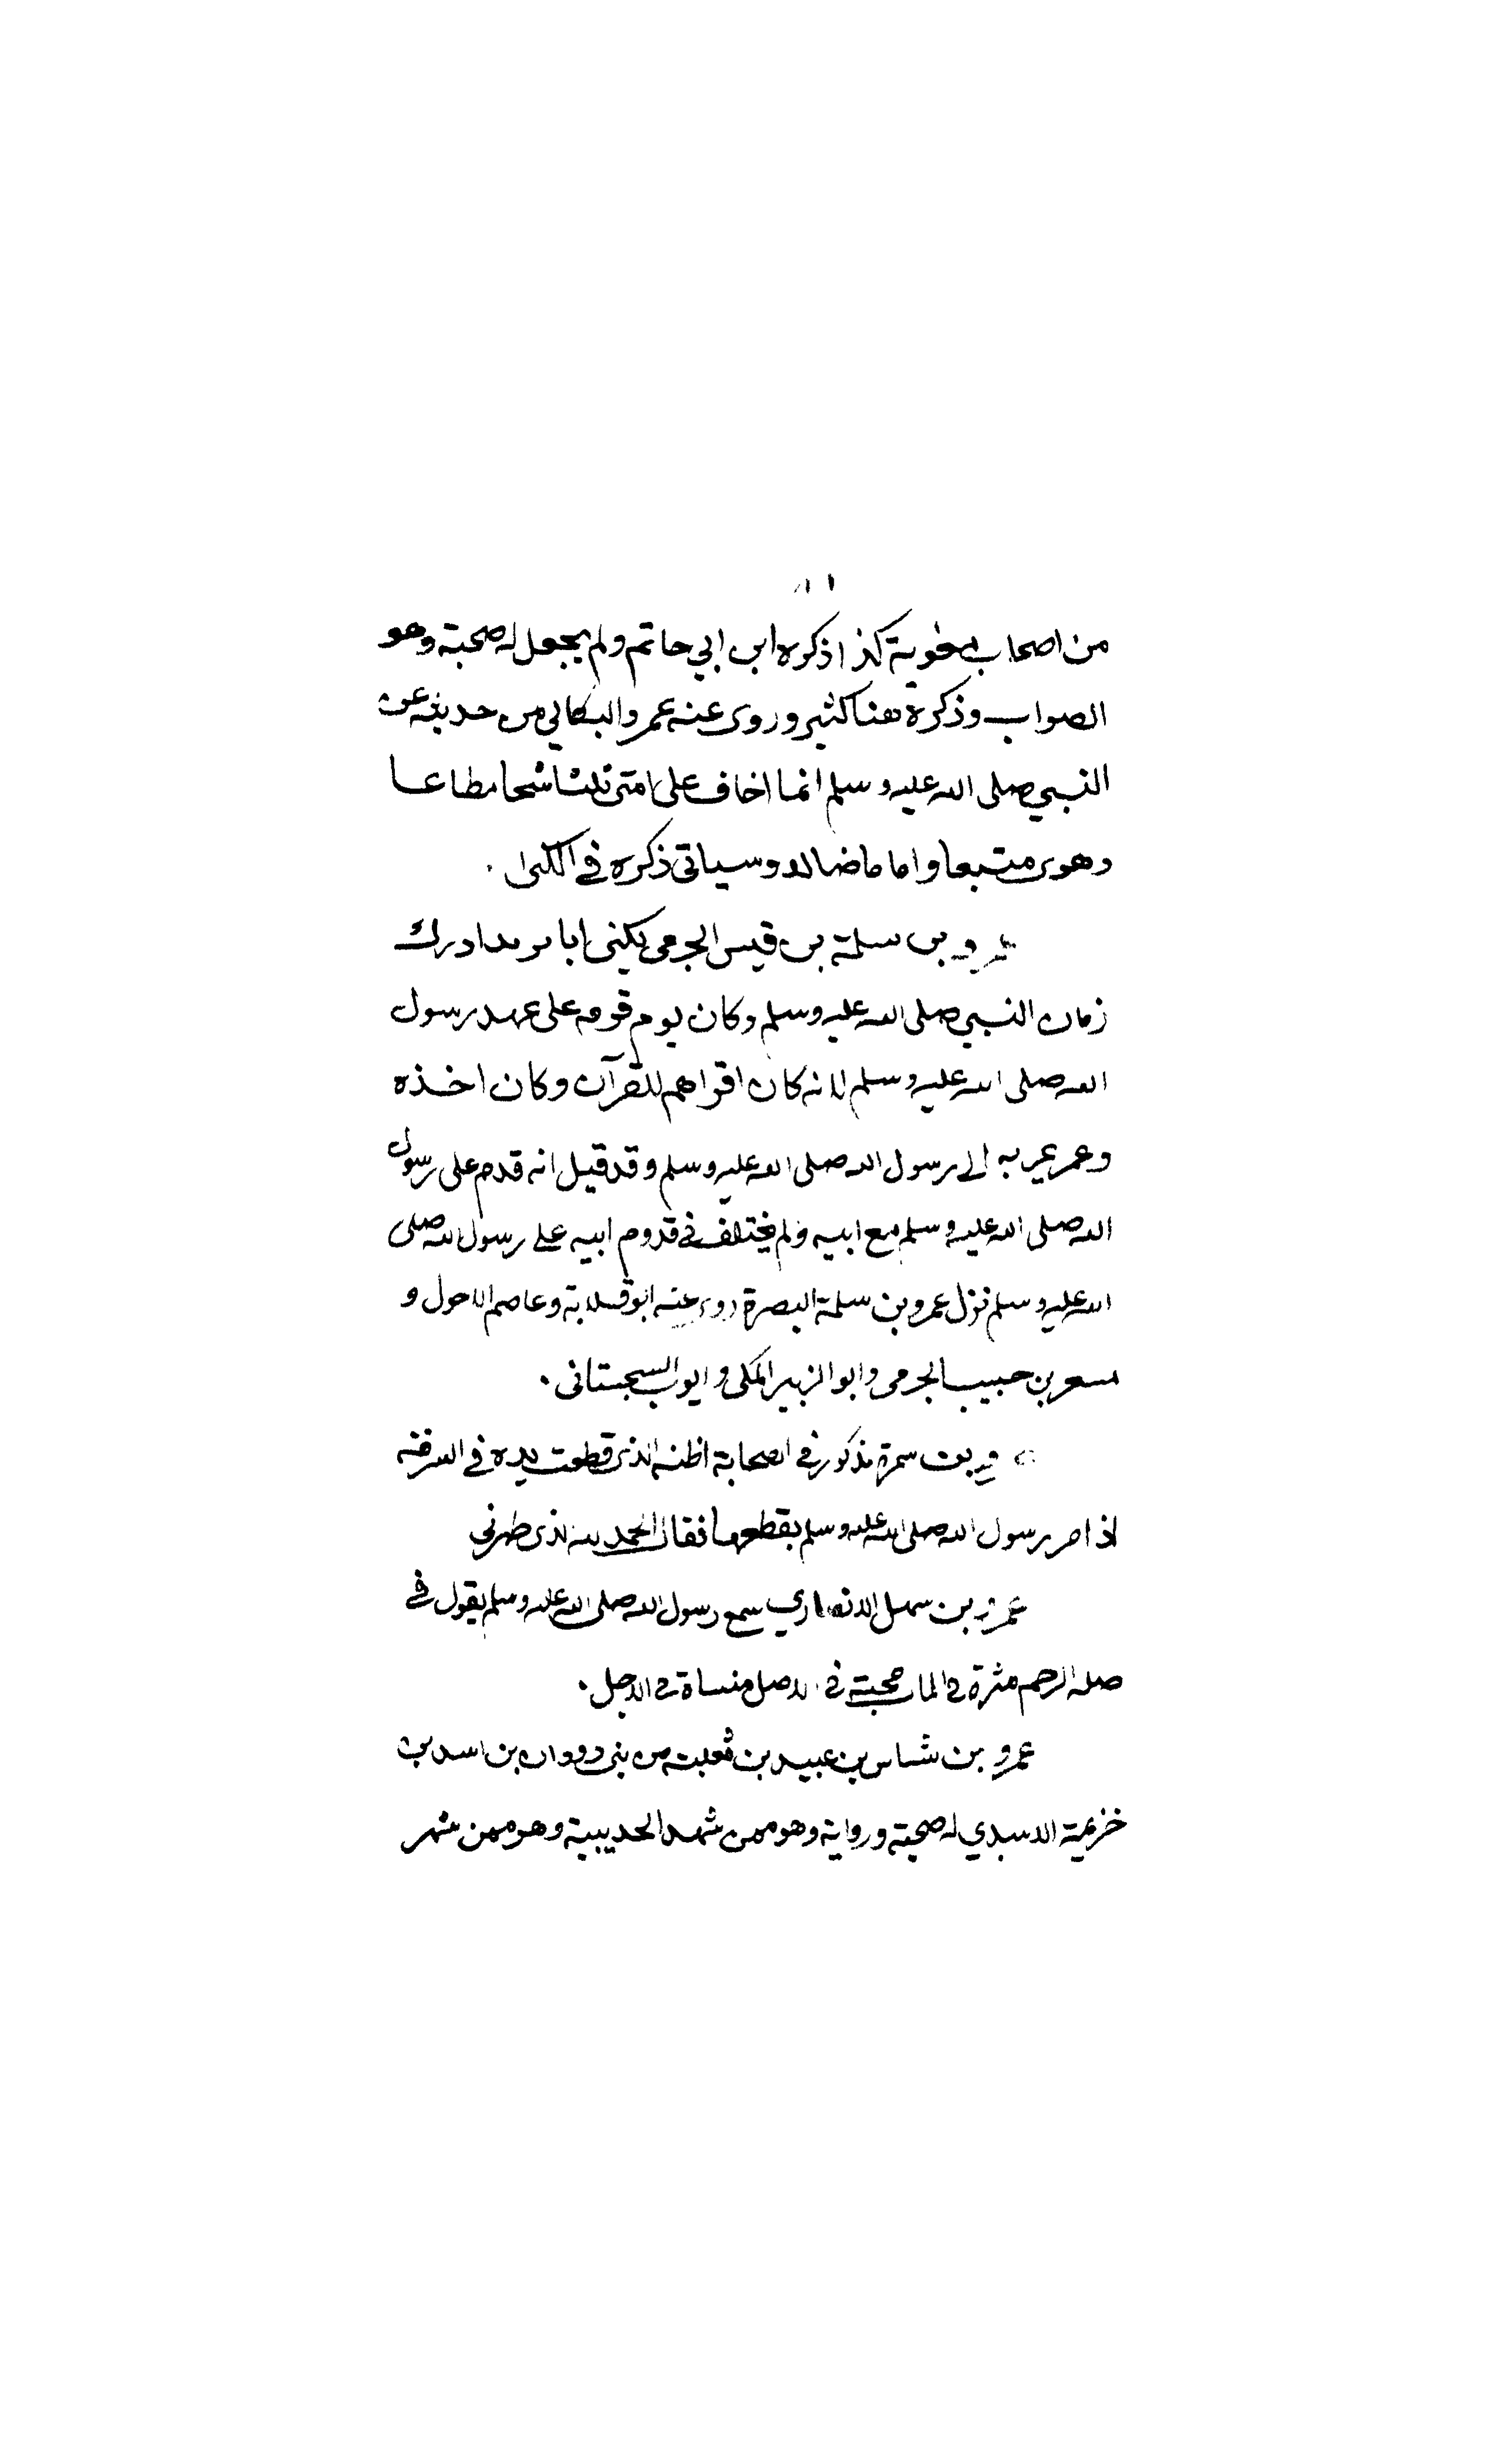 من اصحاب معوية كذا ذكره ابن ابي حاتم ولم يجعل له صحبة وهو
الصواب وذكرة هنا كثير وروى عنه عمرو البكالي من حديثه عن
النبي صلى الله عليه وسلم انما اخاف على امتى ثلثا شحا مطاعا
وهوى متبعا واماما ضالا وسياتى ذكره في الكنى .
عمرو بن سلمة بن قيس الجرمى يكنى ابا بريد ادرك
زمان النبي صلى الله عليه وسلم وكان يوم قومه على عهد رسول
الله صلى الله عليه وسلم لانه كان اقراهم للقرآن وكان اخذه
وعمر به الى رسول الله صلى الله عليه وسلم وقد قيل انه قدم على رسول
الله صلى الله عليه وسلم مع ابيه ولم يختلف في قدوم ابيه على رسول الله صلى
الله عليه وسلم نزل عمرو بن سلمة البصرة روى عنه ابو قلابة وعاصم الاحول و
مسعر بن حبيب الجرمى وابو الزبير المكى وايوب السجستانى .
بن سمرة مذكور في الصحابة اظنه الذى قطعت يده في السرقة
اذ امر رسول الله صلى الله عليه وسلم بقطعها فقال الحمد لله الذى طهرني
عمرو بن سهل الانصاري سمع رسول الله صلى الله عليه وسلم يقول في
صلة الرحم مثرة في المال محبة في الاهل منساة في الاجل .
عمرو بن شاس بن عبيد بن ثعلبة من بنى دودان بن اسد بن
خزيمة الاسدي له صحبة ورواية وهو ممن شهد الحديبية وهو ممن شهر